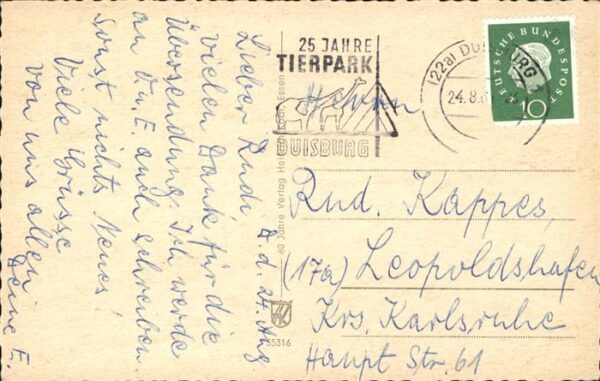 25 JAHRE
TIERPARK
DUISBURG
(22a) DUISBURG 1
24.8.
DEUTSCHE BUNDESPOST
10
D. d. 24. Aug
Lieber Rudi
Vielen Dank für die
Übersendung. Ich werde
an Dr. E. auch schreiben.
Sonst nichts Neues!
Viele Grüsse
von uns allen
Deine E.
60 Jahre Verlag Essen
55316
Herrn
Rud. Kappes,
(17a) Leopoldshafen
Krs. Karlsruhe
Haupt Str. 61